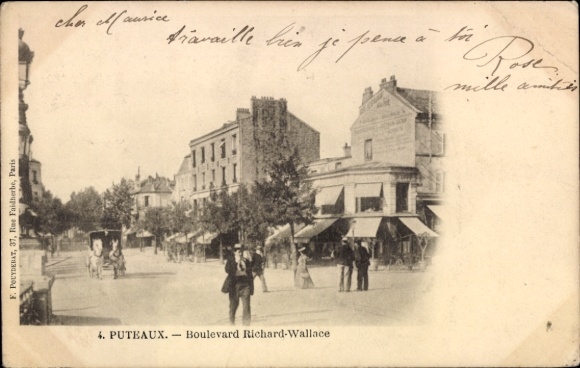 cher Maurice
travaille bien je pense à toi
Rose
mille amitiés
F. POUYDEBAT, 37, Rue Faidherbe, Paris
4. PUTEAUX. — Boulevard Richard-Wallace